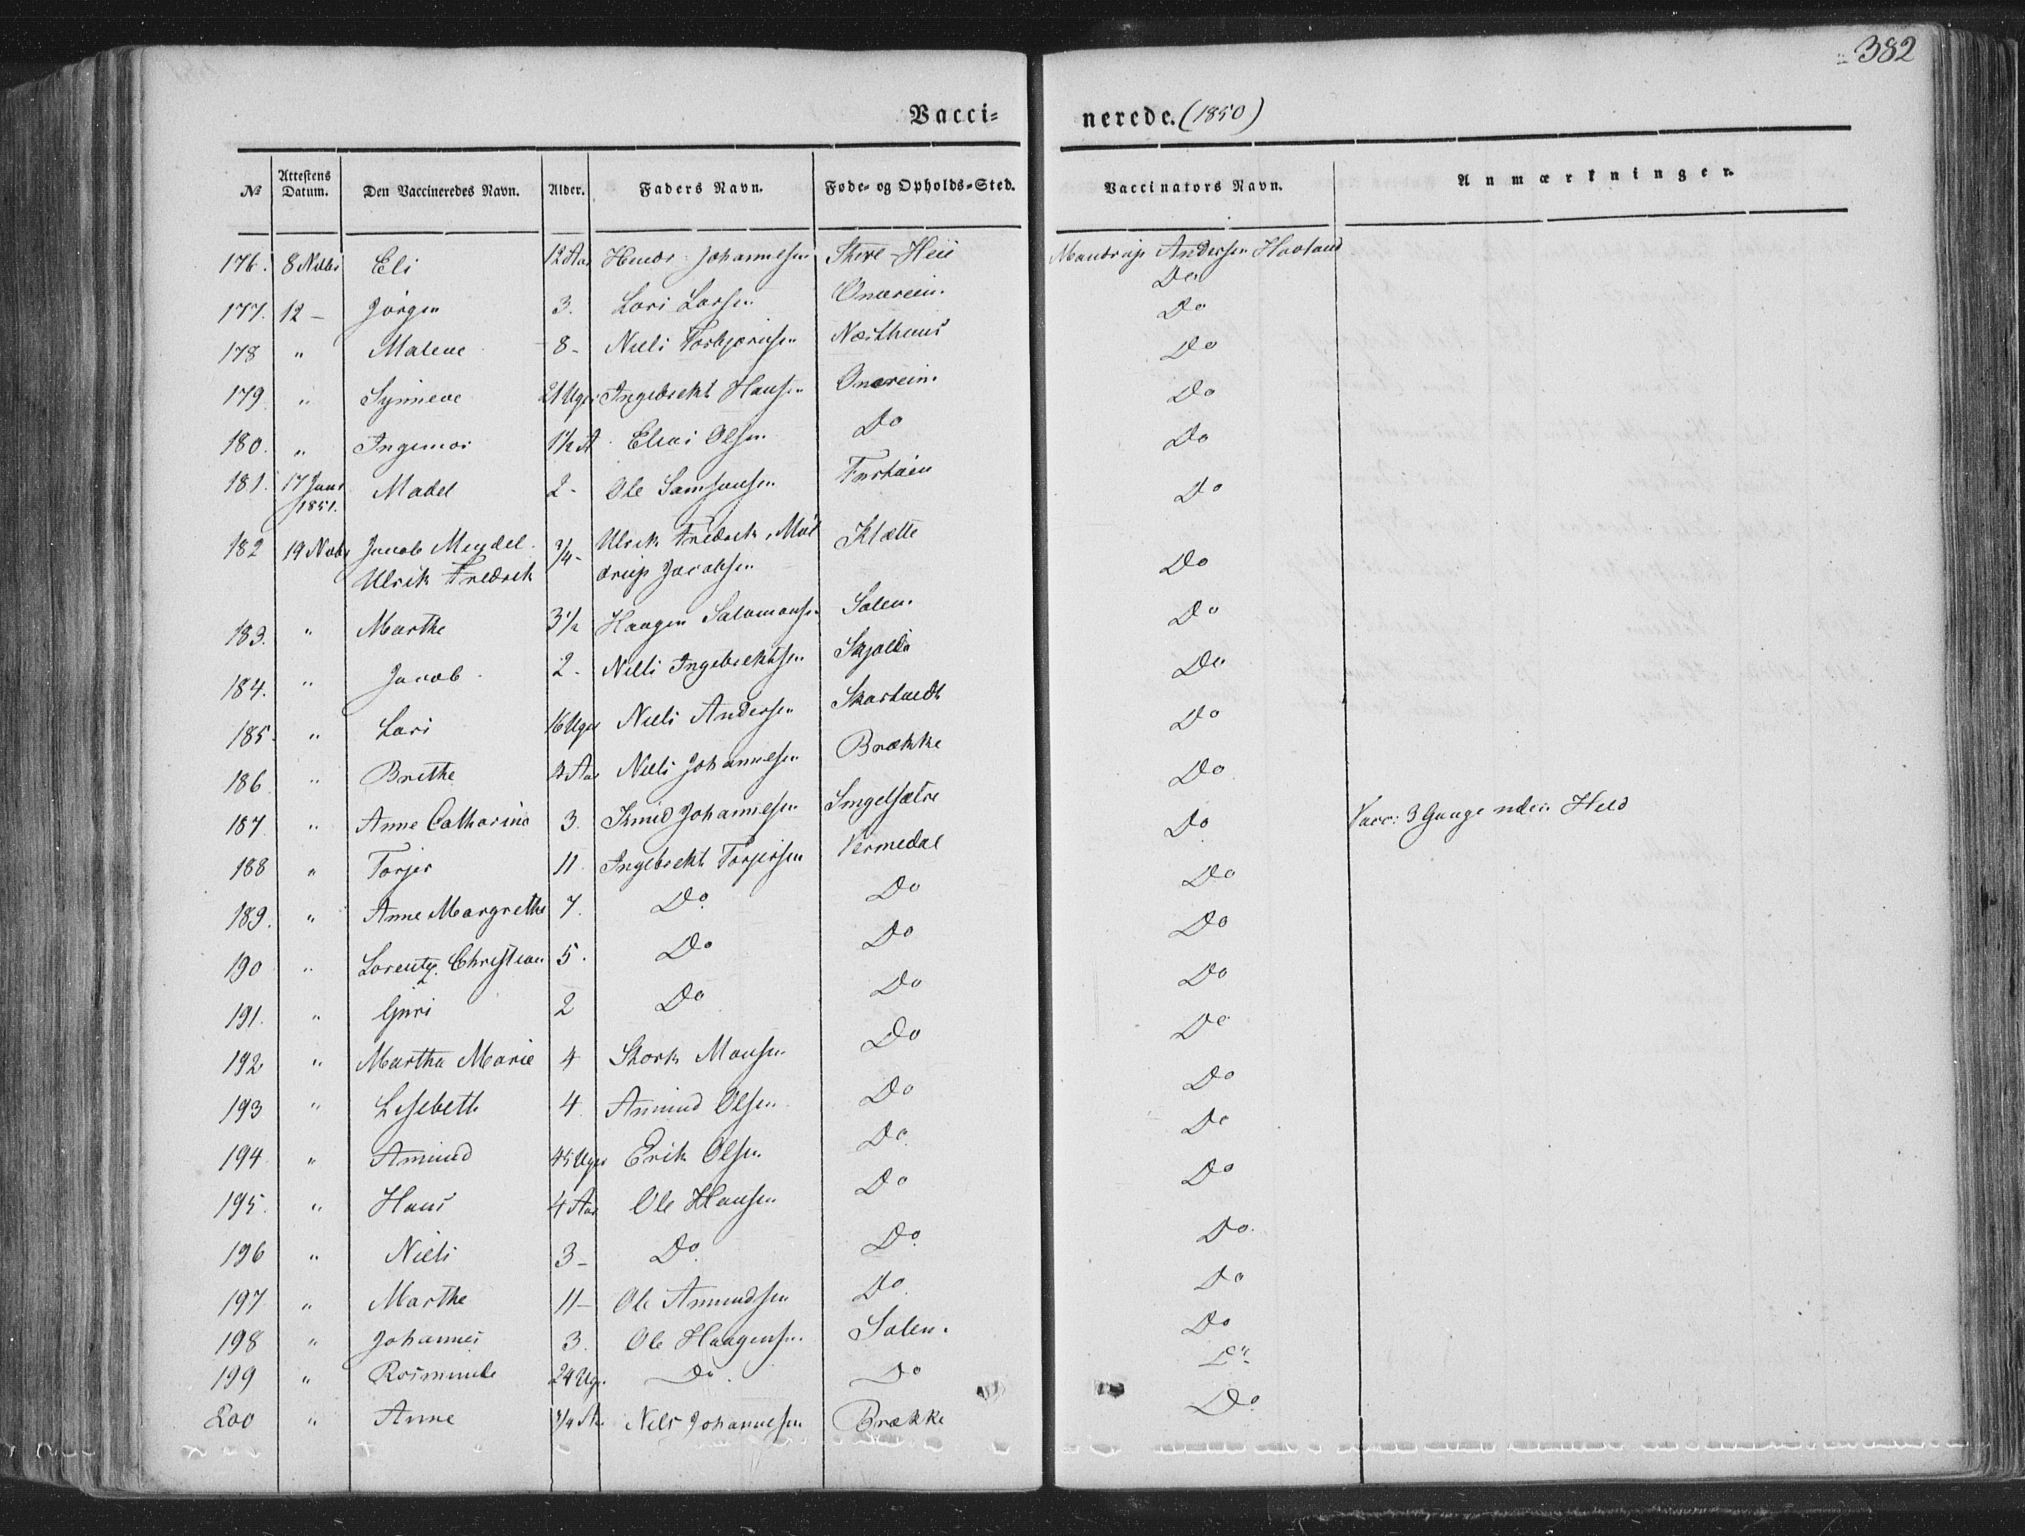 382
Vacci- nerede. (1850)
№ Attestens Datum. Den Vaccineredes Navn. Alder. Faders Navn. Føde- og Opholds-Sted. Vaccinators Navn. Anmærkninger.
176. 8 Novbr Eli 12 Aar Johannesen Mandrup Andersen Do
177. 12 - Jørgen 3. Lars Larsen Onarein. Do
178 " Malene 8 - Niels Torbjørnsen Næsthuus Do
179 " Synneve 21 Uger Ingebrekt Hansen Onarein. Do
180. " Ingemor 1½ A Elias Olsen Do Do
181. 17 Janr 1851. Madel 2 - Ole Samsonsen Do
182 19 Novbr Jacob Meydel ¾ - Ulrik Fredrik Mol Klætte
Ulrik Fredrik drup Jacobsen Do
183. " Marthe 3½ Haagen Salamonsen Solem. Do
184. " Jacob 2 - Niels Ingebrektsen Do
185. " Lars 16 Uger Niels Andersen Do
186 " Brithe Aar Niels Johannesen Brække Do
187 " Anne Catharina 3. Knud Johannesen Do Vacc: 3 Gange uden Held
188 " Torjer 11. Ingebrekt Torjersen Vermedal Do
189. " Anne Margrethe 7. Do Do Do
190 " Lorentz Christian 5. Do Do Do
191. " Guri 2 Do Do Do
192 " Martha Marie 4 Stork Monsen Do Do
193 " Lisebeth 4. Amund Olsen Do Do
194 " Amund 45 Uger Erik Olsen Do Do
195. " Hans 4 Aar Ole Hansen Do Do.
196 " Niels 3 - Do. Do. Do
197 " Marthe 11 - Ole Amundsen Do. Do
198 " Johannes 3. Ole Haagensen Solem. Do
199 " Rosmunde 24 Uger Do. Do
200 " Anne ¾ Aar Nils Johannesen Brække Do